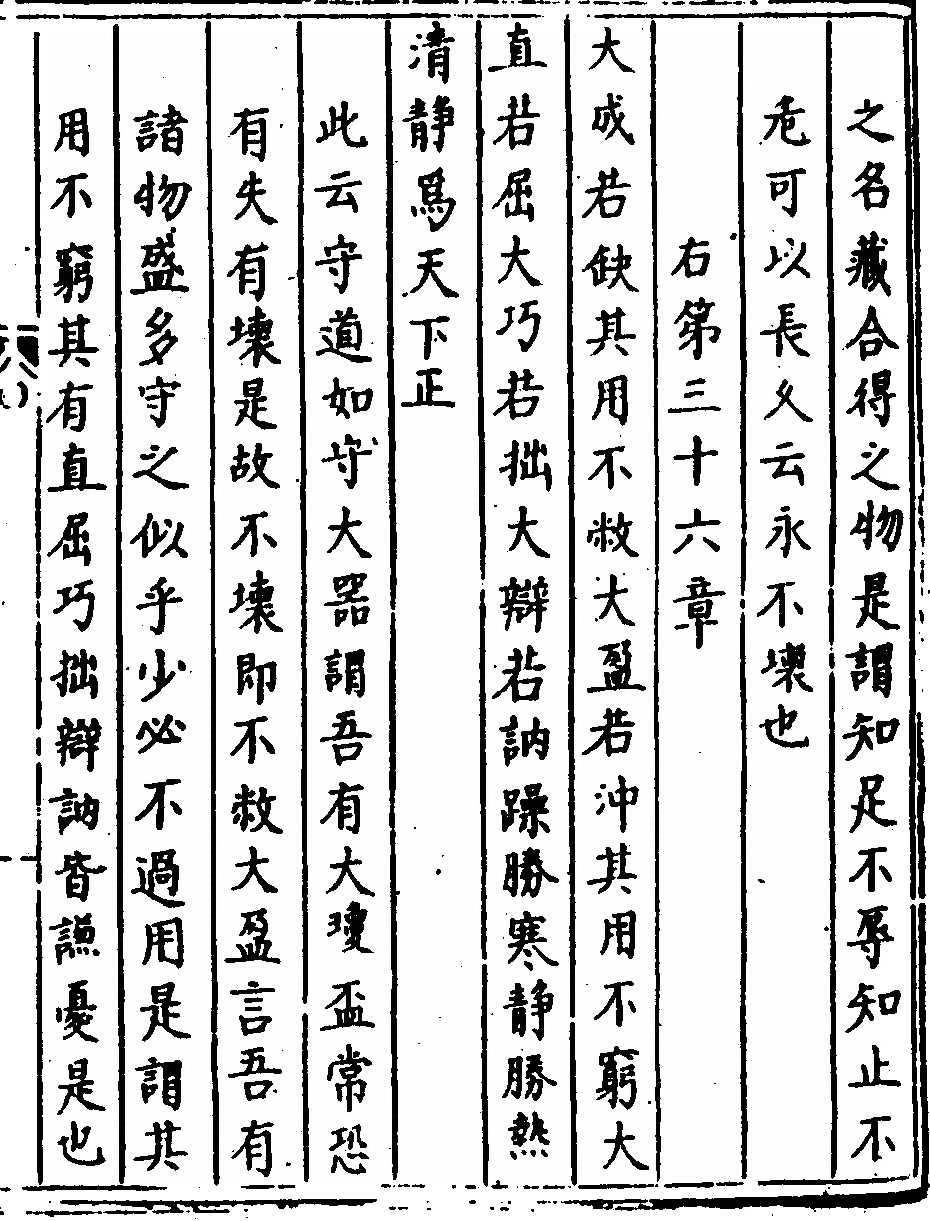 之名藏合得之物是謂知足不辱知止不
危可以長久云永不壞也
右第三十六章
大成若缺其用不敝大盈若沖其用不窮大
直若屈大巧若拙大辯若訥躁勝寒静勝熱
清静爲天下正
此云守道如守大器謂吾有大瓊盃常恐
有失有壞是故不壞即不敝大盈言吾有
諸物盛多守之似乎少必不過用是謂其
用不窮其有直屈巧拙辯訥皆謙憂是也